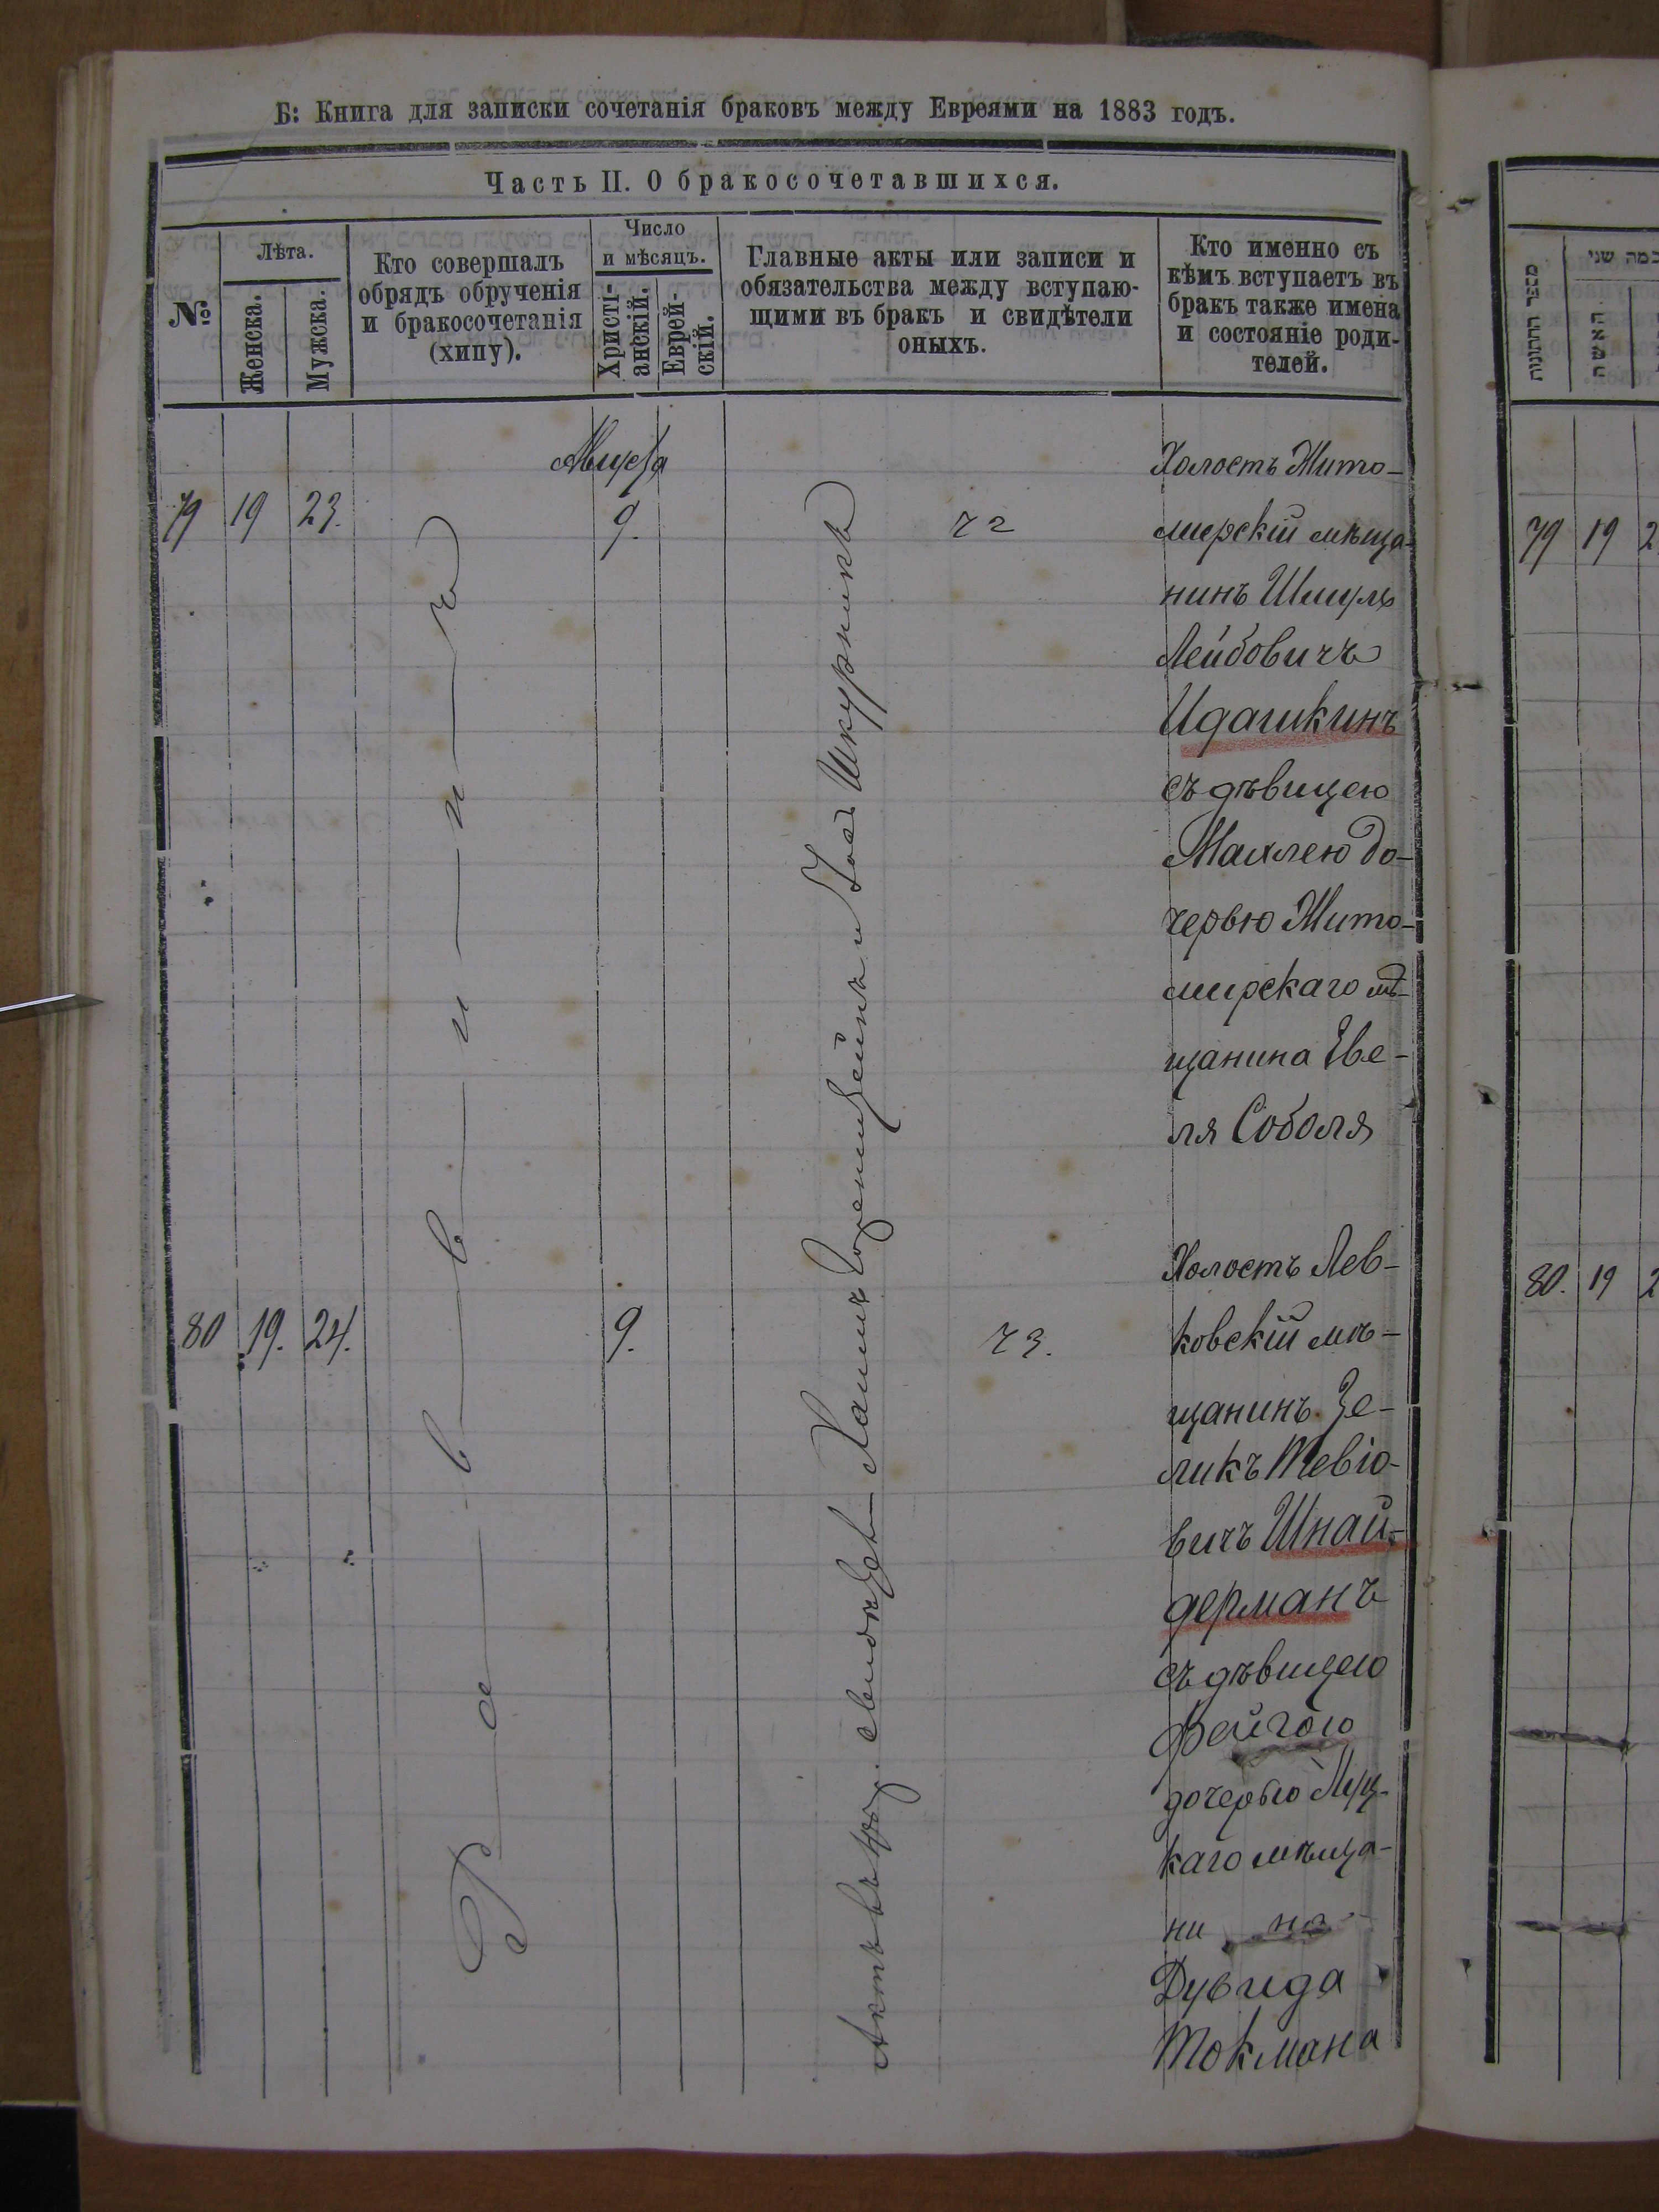 Б: Книга для записки сочетанія браковъ между Евреями на 1883 годъ.
Часть II. О бракосочетавшихся.
№
Лѣта.
Женска.
Мужска.
Кто совершалъ
обрядъ обрученія
и бракосочетанія
(хипу).
Число
и мѣсяцъ.
Христі-
анскій.
Еврей-
скій.
Главные акты или записи и
обязательства между вступаю-
щими въ бракъ и свидѣтели
оныхъ.
Кто именно съ
кѣмъ вступаетъ въ
бракъ также имена
и состояніе роди-
телей.
Августа
79 19 23. 9. 72
Холостъ Жито-
мирскій мѣща-
нинъ Шмуль
Лейбовичъ
Идашкинъ
съ дѣвицею
Малкою до-
черью Жито-
мирскаго мѣ-
щанина Еве-
ля Соболя
80 19. 24. 9. 73.
Холостъ Лев-
ковскій мѣ-
щанинъ Зе-
ликъ Тевіо-
вичъ Шнай-
дерманъ
съ дѣвицею
Фейгою
дочерью Луц-
каго мѣща-
ни на
Дувида
Токмана
Раввинъ
Хаимъ и Іось Шкурникъ
מספר החתונות
כמה שני
האשה
79 19 2
80. 19 2